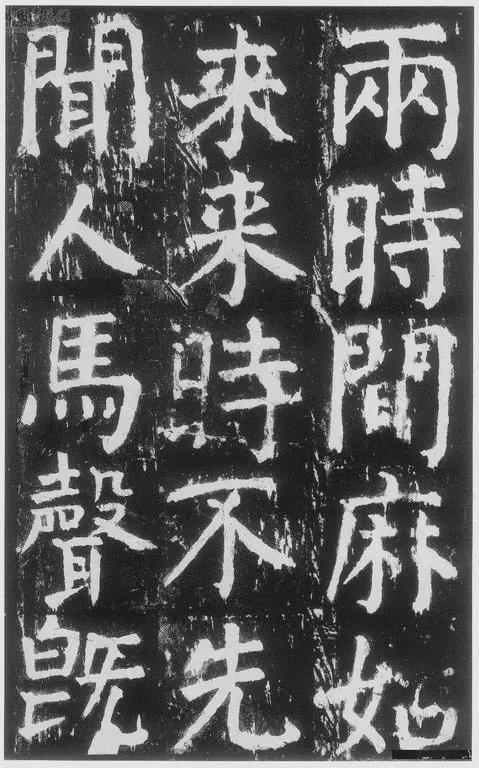 兩時間麻姑
来来時不先
聞人馬聲既